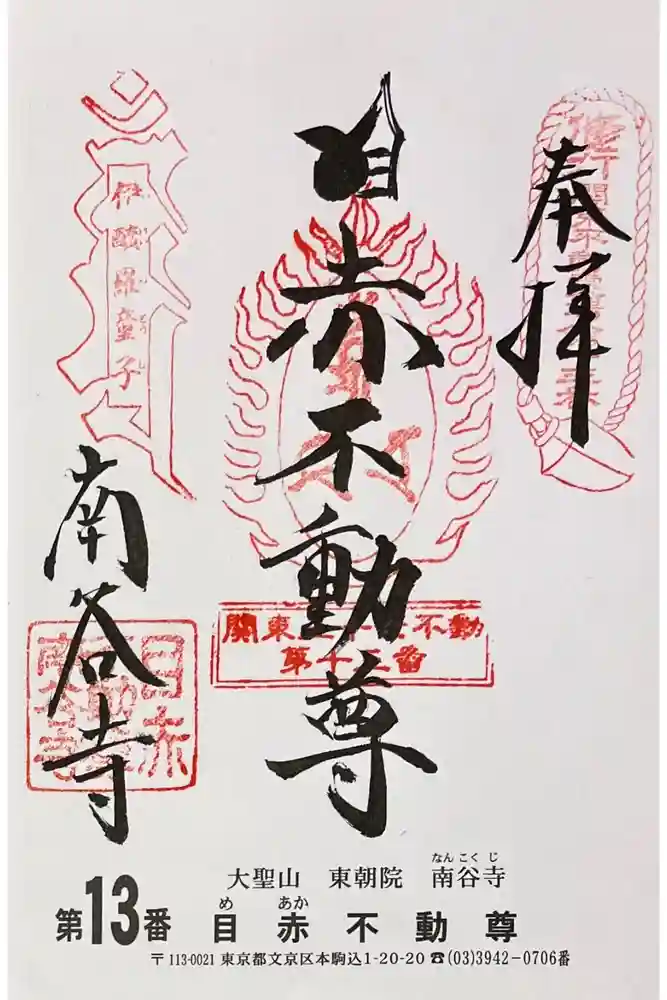 奉拝
目赤不動尊
伊醯羅童子
南谷寺
関東三十六不動
第十三番
大聖山 東朝院 南谷寺
なんこくじ
第13番 目赤不動尊
めあか
〒113-0021 東京都文京区本駒込1-20-20 ☎(03)3942-0706番